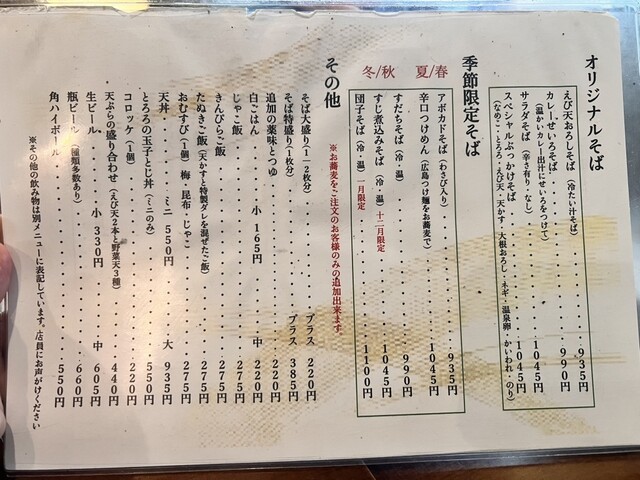 オリジナルそば
えび天おろしそば(冷たい汁そば)・・・・・・935円
カレーせいろそば・・・・・・990円
(温かいカレー出汁にせいろをつけて)
サラダそば(辛さ有り・なし)・・・・・・1045円
スペシャルぶっかけそば・・・・・・1045円
(なめこ・とろろ・えび天・天かす・大根おろし・ネギ・温泉卵・かいわれ・のり)
季節限定そば
夏/春
アボカドそば(わさび入り)・・・・・・935円
辛口つけめん(広島つけ麺をお蕎麦で)・・・・・・1045円
冬/秋
すだちそば(冷・温)・・・・・・990円
すじ煮込みそば(冷・温)十二月限定・・・・・・1045円
団子そば(冷・温)一月限定・・・・・・1100円
その他
※お蕎麦をご注文のお客様のみの追加出来ます。
そば大盛り(1-2枚分)・・・・・・プラス 220円
そば特盛り(1枚分)・・・・・・プラス 385円
追加の薬味とつゆ・・・・・・220円
白ごはん・・・・・・小 165円・・・・・・中 220円
じゃこ飯・・・・・・275円
きんぴらご飯・・・・・・275円
たぬきご飯(天かすと特製ダレを混ぜたご飯)・・・・・・275円
おむすび(1個)梅・昆布・じゃこ・・・・・・275円
天丼・・・・・・ミニ 550円・・・・・・大 935円
とろろの玉子とじ丼(ミニのみ)・・・・・・550円
コロッケ(1個)・・・・・・220円
天ぷらの盛り合わせ(えび天2本と野菜天3種)・・・・・・440円
生ビール・・・・・・小 330円・・・・・・中 605円
瓶ビール(種類多数あり)・・・・・・660円
角ハイボール・・・・・・550円
※その他の飲み物は別メニューに表記しています。店員にお声がけください